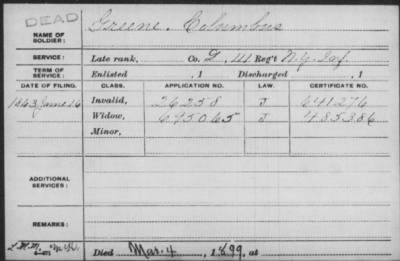 DEAD
NAME OF SOLDIER: Greene, Columbus
SERVICE: Late rank, Co. D, 111 Reg't N.Y. Inf.
TERM OF SERVICE: Enlisted , 1 Discharged , 1
DATE OF FILING. CLASS. APPLICATION NO. LAW. CERTIFICATE NO.
1863 June 16 Invalid, 26258 J 641276
Widow, 695065 J 485386
Minor,
ADDITIONAL SERVICES:
REMARKS:
Died Mar. 4, 1899, at